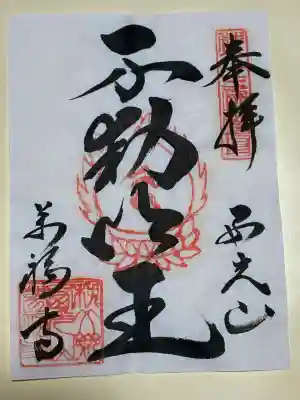 奉拝
西光山
不動明王
萬福寺